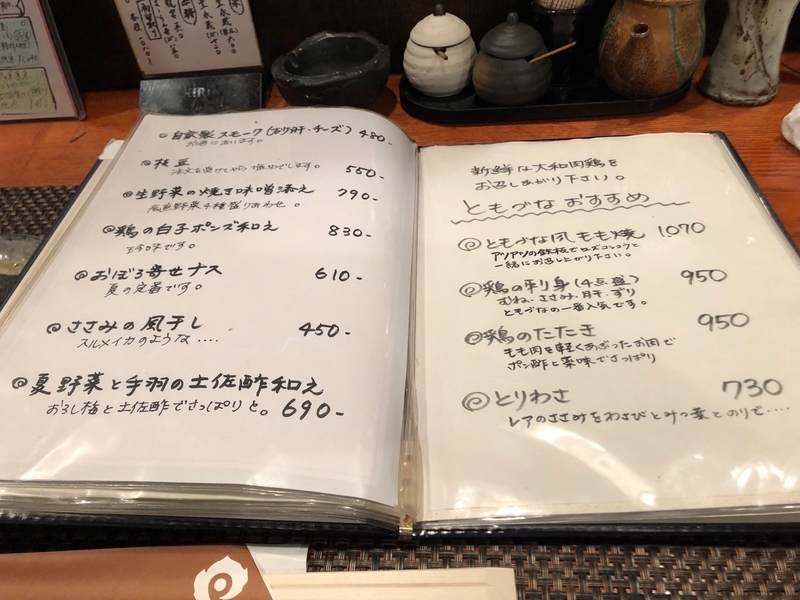 自家製スモーク(砂肝・チーズ) 480-
お酒に合います。
枝豆 550-
注文を受けてから塩ゆでします。
生野菜の焼き味噌添え 790-
鶏の白子ポンズ和え 830-
珍味です。
おぼろ寄せナス 610-
夏の定番です。
ささみの風干し 450-
スルメイカのような....
夏野菜と手羽の土佐酢和え
おろし梅と土佐酢でさっぱりと。 690-
新鮮な大和肉鶏を
お召しあがり下さい。
ともづなおすすめ
ともづな風もも焼 1070
アツアツの鉄板で
一緒にお召し上がり下さい。
鶏の刺身(4点盛) 950
むね、ささみ、肝、ずり
ともづなの一番人気です。
鶏のたたき 950
もも肉を軽くあぶったお肉で
ポン酢と薬味でさっぱり
とりわさ 730
レアのささみをわさびとみつ葉とのりで....